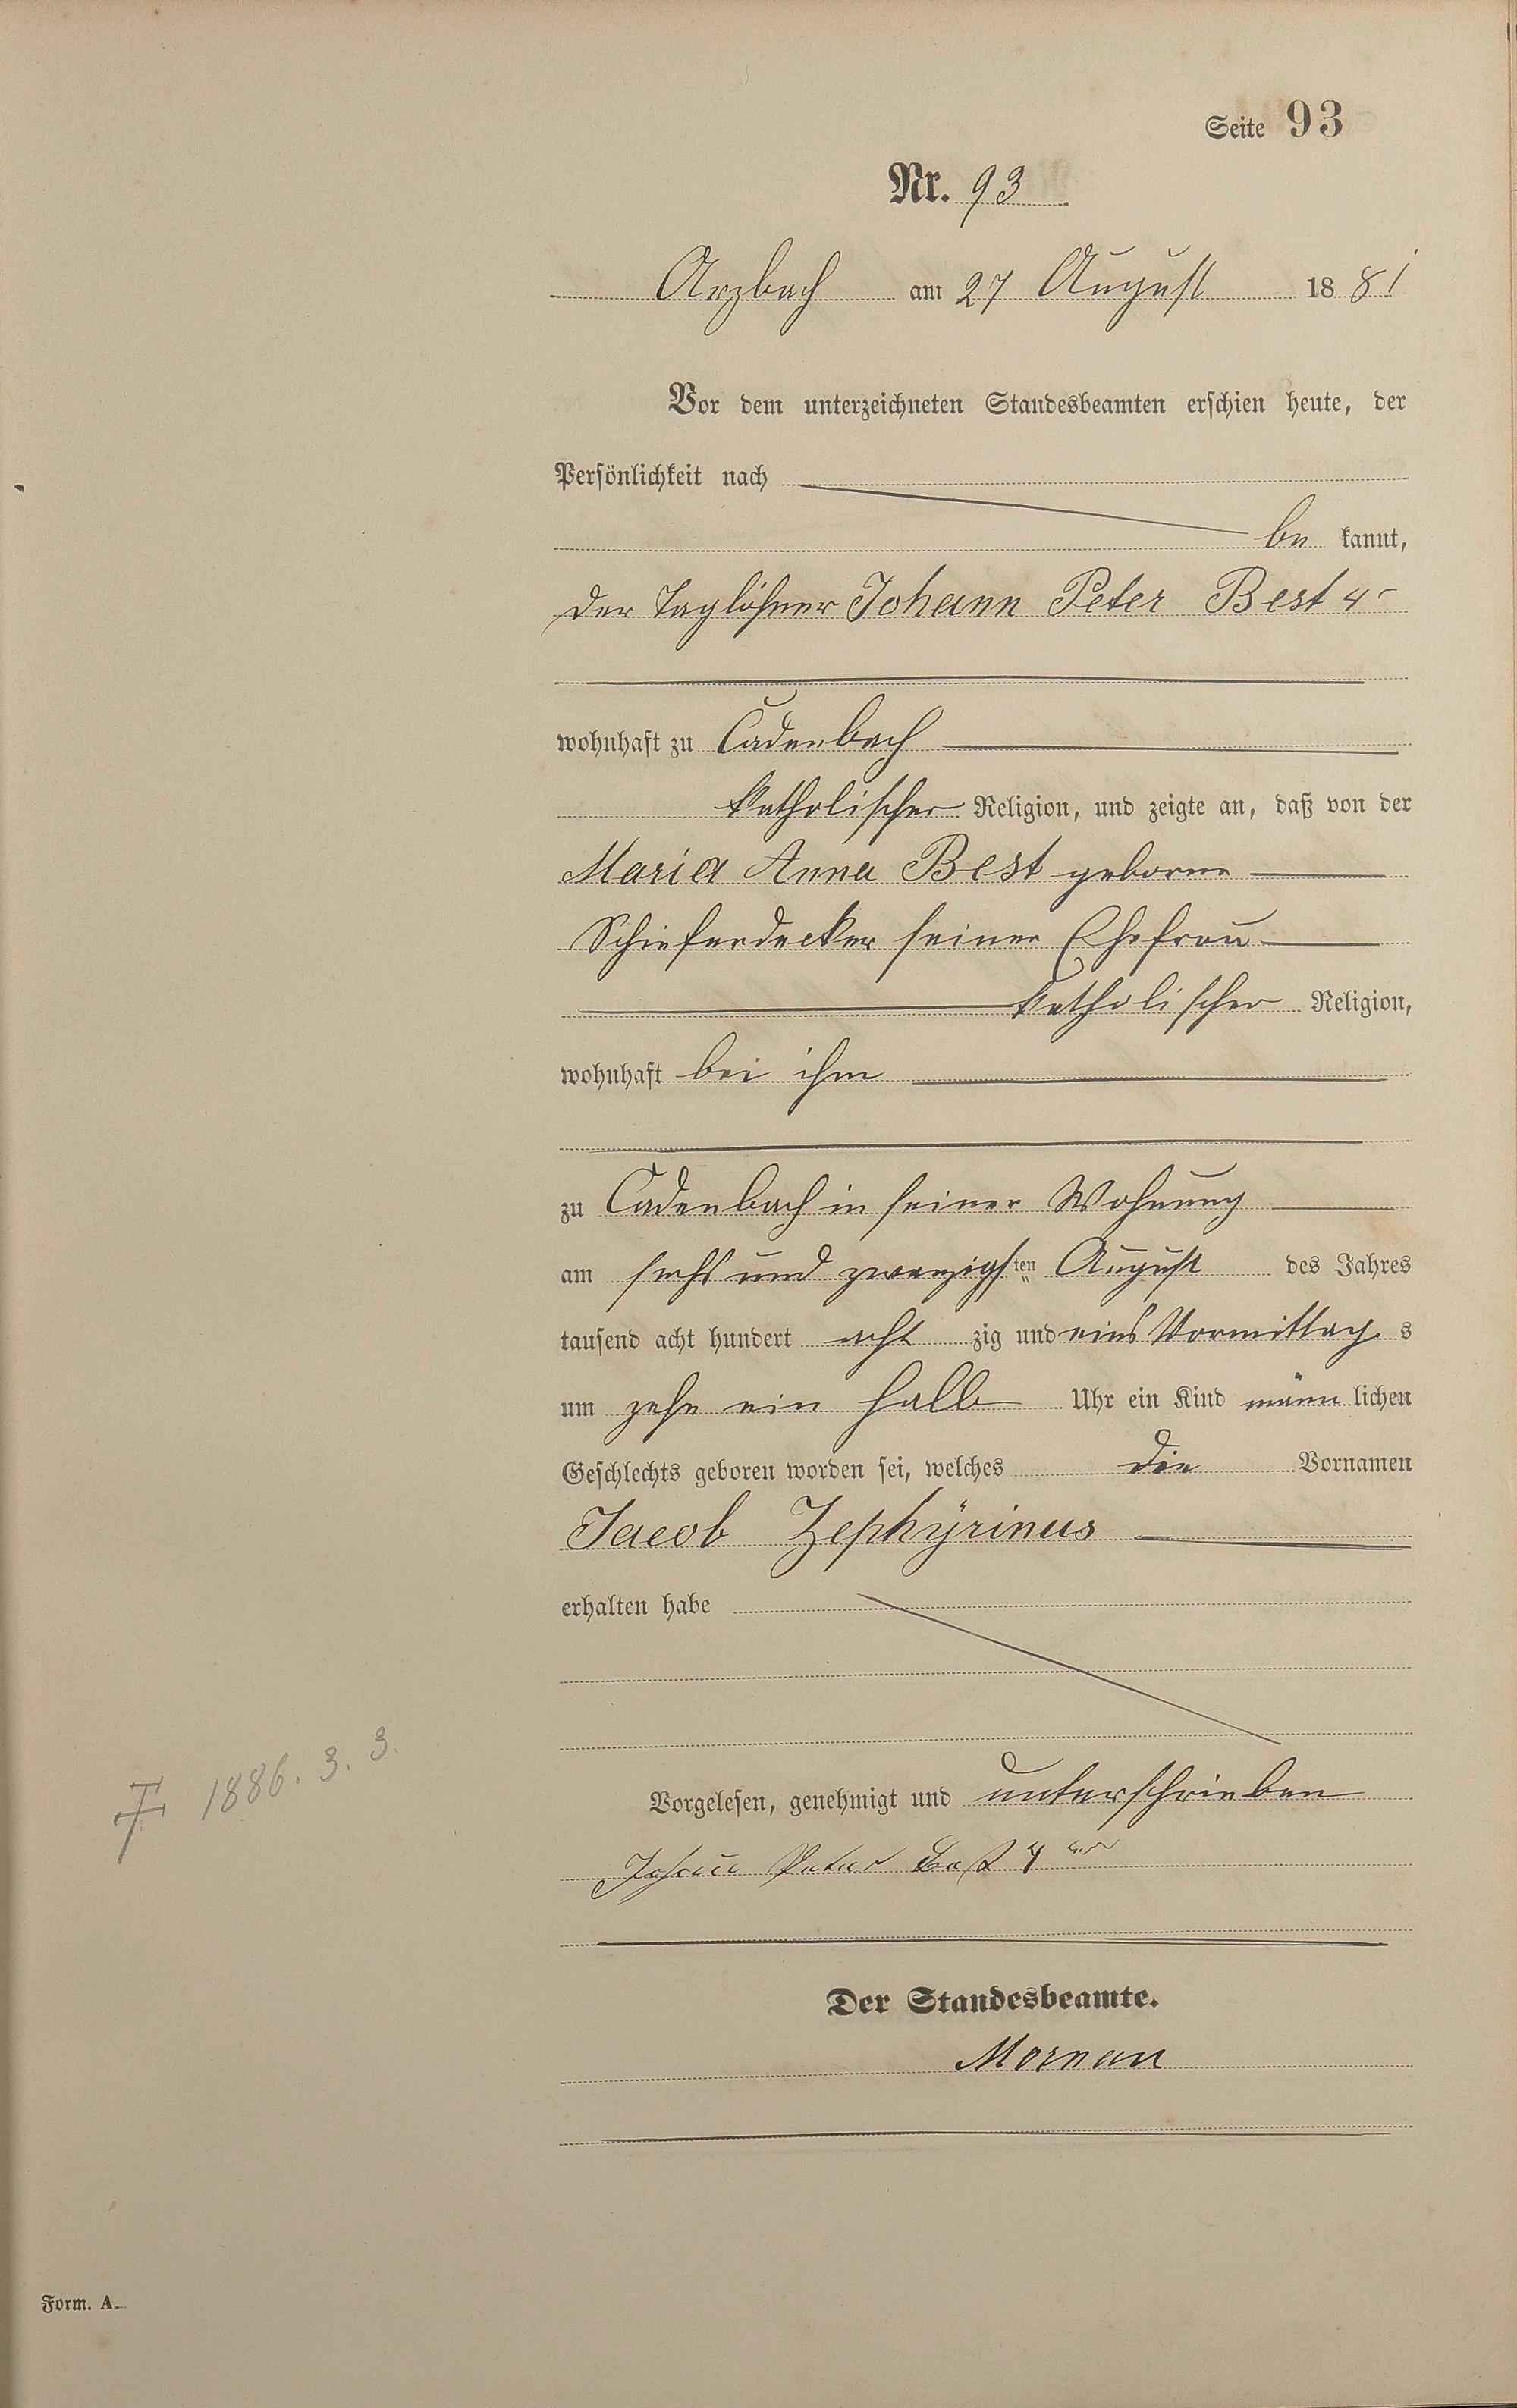 Seite 93
Nr. 93
Arzbach am 27 August 1881
Vor dem unterzeichneten Standesbeamten erschien heute, der
Persönlichkeit nach
be kannt,
der Taglöhner Johann Peter Best 4r
wohnhaft zu Cadenbach
katholischer Religion, und zeigte an, daß von der
Maria Anna Best geborne
Schieferdecker seiner Ehefrau
katholischer Religion,
wohnhaft bei ihm
zu Cadenbach in seiner Wohnung
am sechs und zwanzigsten August des Jahres
tausend acht hundert acht zig und eins Vormittag s
um zehn ein halb Uhr ein Kind männ lichen
Geschlechts geboren worden sei, welches die Vornamen
Jacob Zephÿrinus
erhalten habe
† 1886. 3. 3.
Vorgelesen, genehmigt und unterschrieben
Johann Peter Best 4ter
Der Standesbeamte.
Mornau
Form. A.